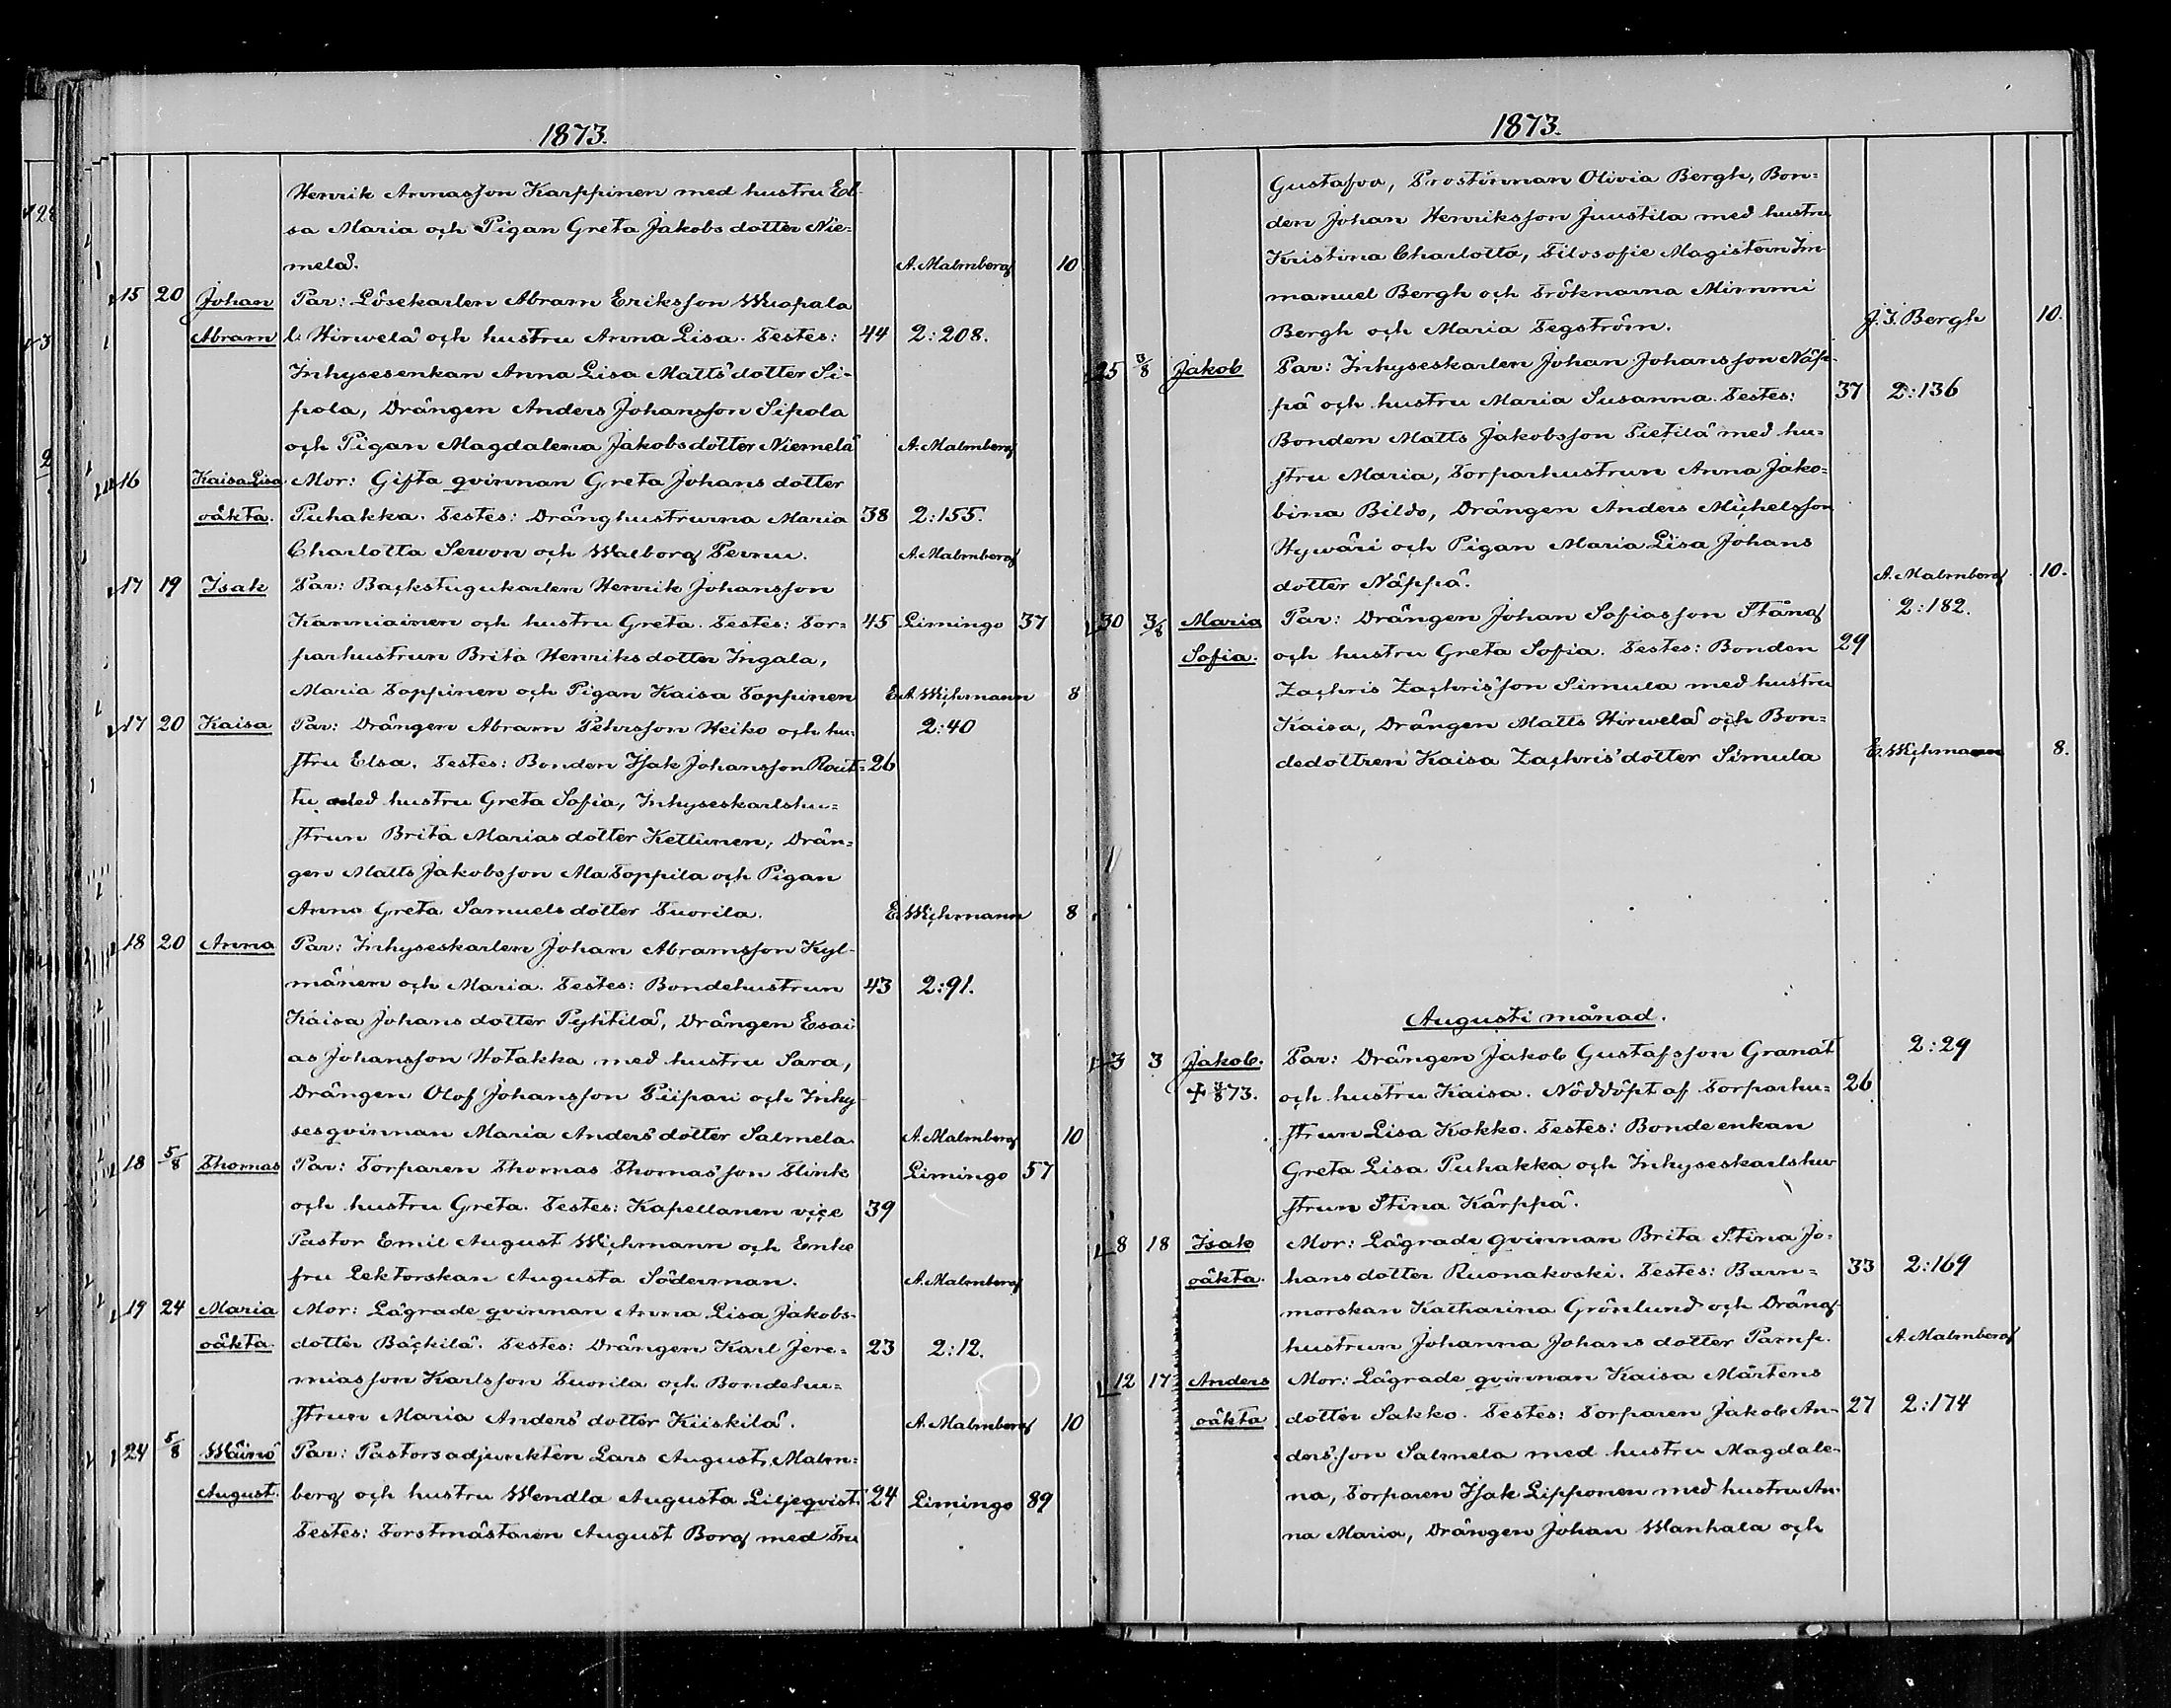 1873.
Henrik Annasson Karppinen med hustru El-
sa Maria och Pigan Greta Jakobs dotter Nie-
melä. A. Malmberg 10
15 20 Johan Par: Lösekarlen Abram Eriksson
Abram l. Hirwelä och hustru Anna Lisa. Testes: 44 2:208.
Inhysesenkan Anna Lisa Matts dotter Si-
pola, Drängen Anders Johansson Sipola
och Pigan Magdalena Jakobsdotter Niemelä A. Malmberg
16 Kaisa Lisa Mor: Gifta qvinnan Greta Johans dotter
oäkta. Puhakka. Testes: Dränghustrurna Maria 38 2:155.
Charlotta Sewon och Walborg A. Malmberg
17 19 Isak Par: Backstugukarlen Henrik Johansson
Kanniainen och hustru Greta. Testes: Tor- 45 Limingo 37
parhustrun Brita Henriks dotter Ingala,
Maria Toppinen och Pigan Kaisa Toppinen E. A. Wichmann 8
17 20 Kaisa Par: Drängen Abram Pehrsson Heiko och hu- 2:40
stru Elsa. Testes: Bonden Isak Johansson Rout- 26
tu med hustru Greta Sofia, Inhyseskarlshu-
strun Brita Marias dotter Kettunen, Drän-
gen Matts Jakobsson MaToppila och Pigan
Anna Greta Samuels dotter Tuorila. E. Wichmann 8
18 20 Anna Par: Inhyseskarlen Johan Abramsson Kyl-
mänen och Maria. Testes: Bondehustrun 43 2:91.
Kaisa Johans dotter Pyhtilä, Drängen Esai-
as Johansson Hotakka med hustru Sara,
Drängen Olof Johansson Piipari och Inhy-
sesqvinnan Maria Anders dotter Salmela. A. Malmberg 10
18 5/8 Thomas Par: Torparen Thomas Thomasson Flink Limingo 57
och hustru Greta. Testes: Kapellanen vice 39
Pastor Emil August Wichmann och Enke
fru Lektorskan Augusta Söderman. A. Malmberg
19 24 Maria Mor: Lägrade qvinnan Anna Lisa Jakobs-
oäkta. dotter Bäckilä. Testes: Drängen Karl Jere- 23 2:12.
miasson Karlsson Tuorila och Bondehu-
strun Maria Anders dotter Kiiskilä. A. Malmberg 10
24 5/8 Wäinö Par: Pastorsadjunkten Lars August Malm-
August. berg och hustru Wendla Augusta Liljeqvist. 24 Limingo 89
Testes: Forstmästaren August Borg med Fru
1873.
Gustafva, Prostinnan Olivia Bergh, Bon-
den Johan Henriksson Juustila med hustru
Kristina Charlotta, Filosofie Magistern Im-
manuel Bergh och Fröknarna Mimmi
Bergh och Maria Segström. J. I. Bergh 10.
25 3/8 Jakob Par: Inhyseskarlen Johan Johansson Näp-
pä och hustru Maria Susanna. Testes: 37 2:136
Bonden Matts Jakobsson Pietilä med hu-
stru Maria, Torparhustrun Anna Jako-
bina Bildo, Drängen Anders Michelsson
Hywäri och Pigan Maria Lisa Johans
dotter Näppä. A. Malmberg 10.
30 3/8 Maria Par: Drängen Johan Sofiasson Stång 2:182.
Sofia. och hustru Greta Sofia. Testes: Bonden 29
Zachris Zachrisson Simula med hustru
Kaisa, Drängen Matts Hirwelä och Bon-
dedottren Kaisa Zachris dotter Simula E. Wichmann 8.
Augusti månad.
3 3 Jakob. Par: Drängen Jakob Gustafsson Granat 2:29
och hustru Kaisa. Nöddöpt af Torparhu- 26
strun Lisa Kokko. Testes: Bondeenkan
Greta Lisa Puhakka och Inhyseskarlshu-
strun Stina Kärppä.
8 18 Isak Mor: Lägrade qvinnan Brita Stina Jo-
oäkta. hans dotter Ruonakoski. Testes: Barn- 33 2:169
morskan Katharina Grönlund och Dräng-
hustrun Johanna Johans dotter Pamp. A. Malmberg
12 17 Anders Mor: Lägrade qvinnan Kaisa Mårtens
oäkta dotter Sakko. Testes: Torparen Jakob An- 27 2:174
dersson Salmela med hustru Magdale-
na, Torparen Isak Lipponen med hustru An-
na Maria, Drängen Johan Wanhala och